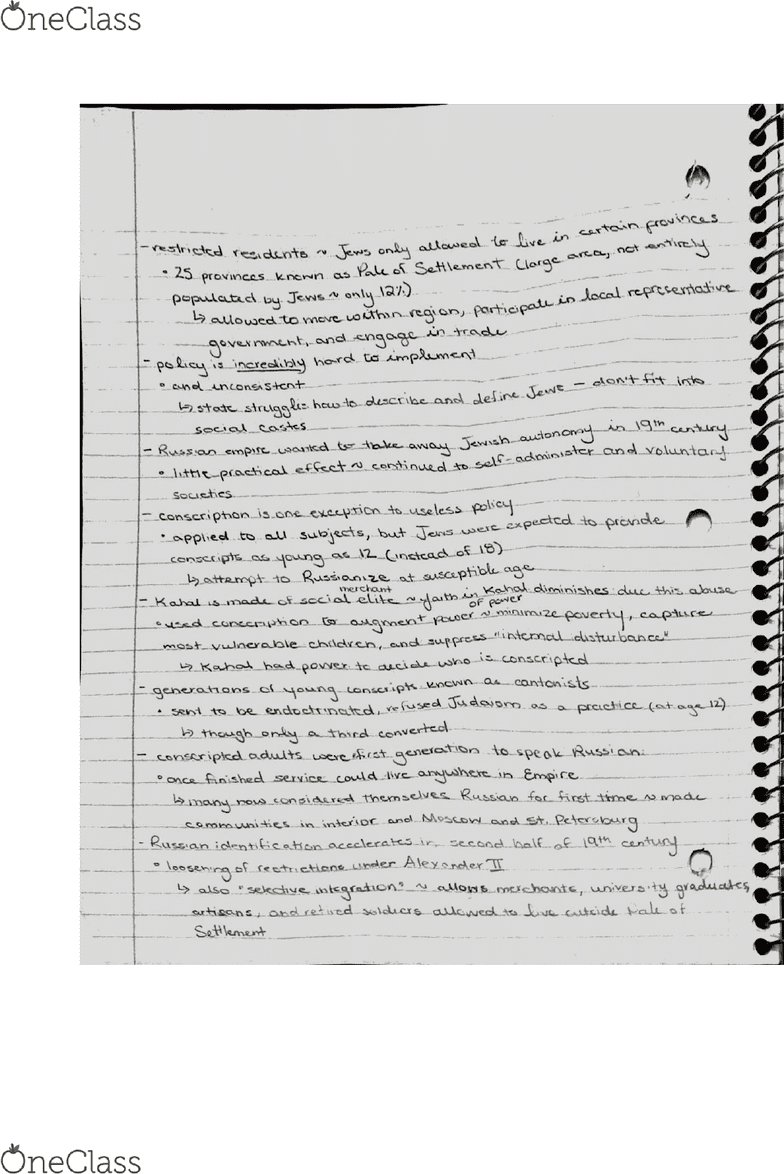 OneClass
- restricted residents ~ Jews only allowed to live in certain provinces
• 25 provinces known as Pale of Settlement (large area, not entirely
populated by Jews ~ only 12%)
↳ allowed to move within region, participate in local representative
government, and engage in trade
- policy is incredibly hard to implement
• and inconsistent
↳ state struggles how to describe and define Jews - don't fit into
social castes
- Russian empire wanted to take away Jewish autonomy in 19th century
• little practical effect ~ continued to self-administer and voluntary
societies
- conscription is one exception to useless policy
• applied to all subjects, but Jews were expected to provide
conscripts as young as 12 (instead of 18)
↳ attempt to Russianize at susceptible age
- Kahal is made of social merchant elite ~ faith in Kahal diminishes due this abuse of power
• used conscription to augment power ~ minimize poverty, capture
most vulnerable children, and suppress "internal disturbance"
↳ Kahal had power to decide who is conscripted
- generations of young conscripts known as cantonists
• sent to be endoctrinated, refused Judaism as a practice (at age 12)
↳ though only a third converted
- conscripted adults were first generation to speak Russian
• once finished service could live anywhere in Empire
↳ many now considered themselves Russian for first time ~ made
communities in interior and Moscow and St. Petersburg
- Russian identification accelerates in second half of 19th century
• loosening of restrictions under Alexander II
↳ also "selective integration" ~ allows merchants, university graduates,
artisans, and retired soldiers allowed to live outside Pale of
Settlement
OneClass